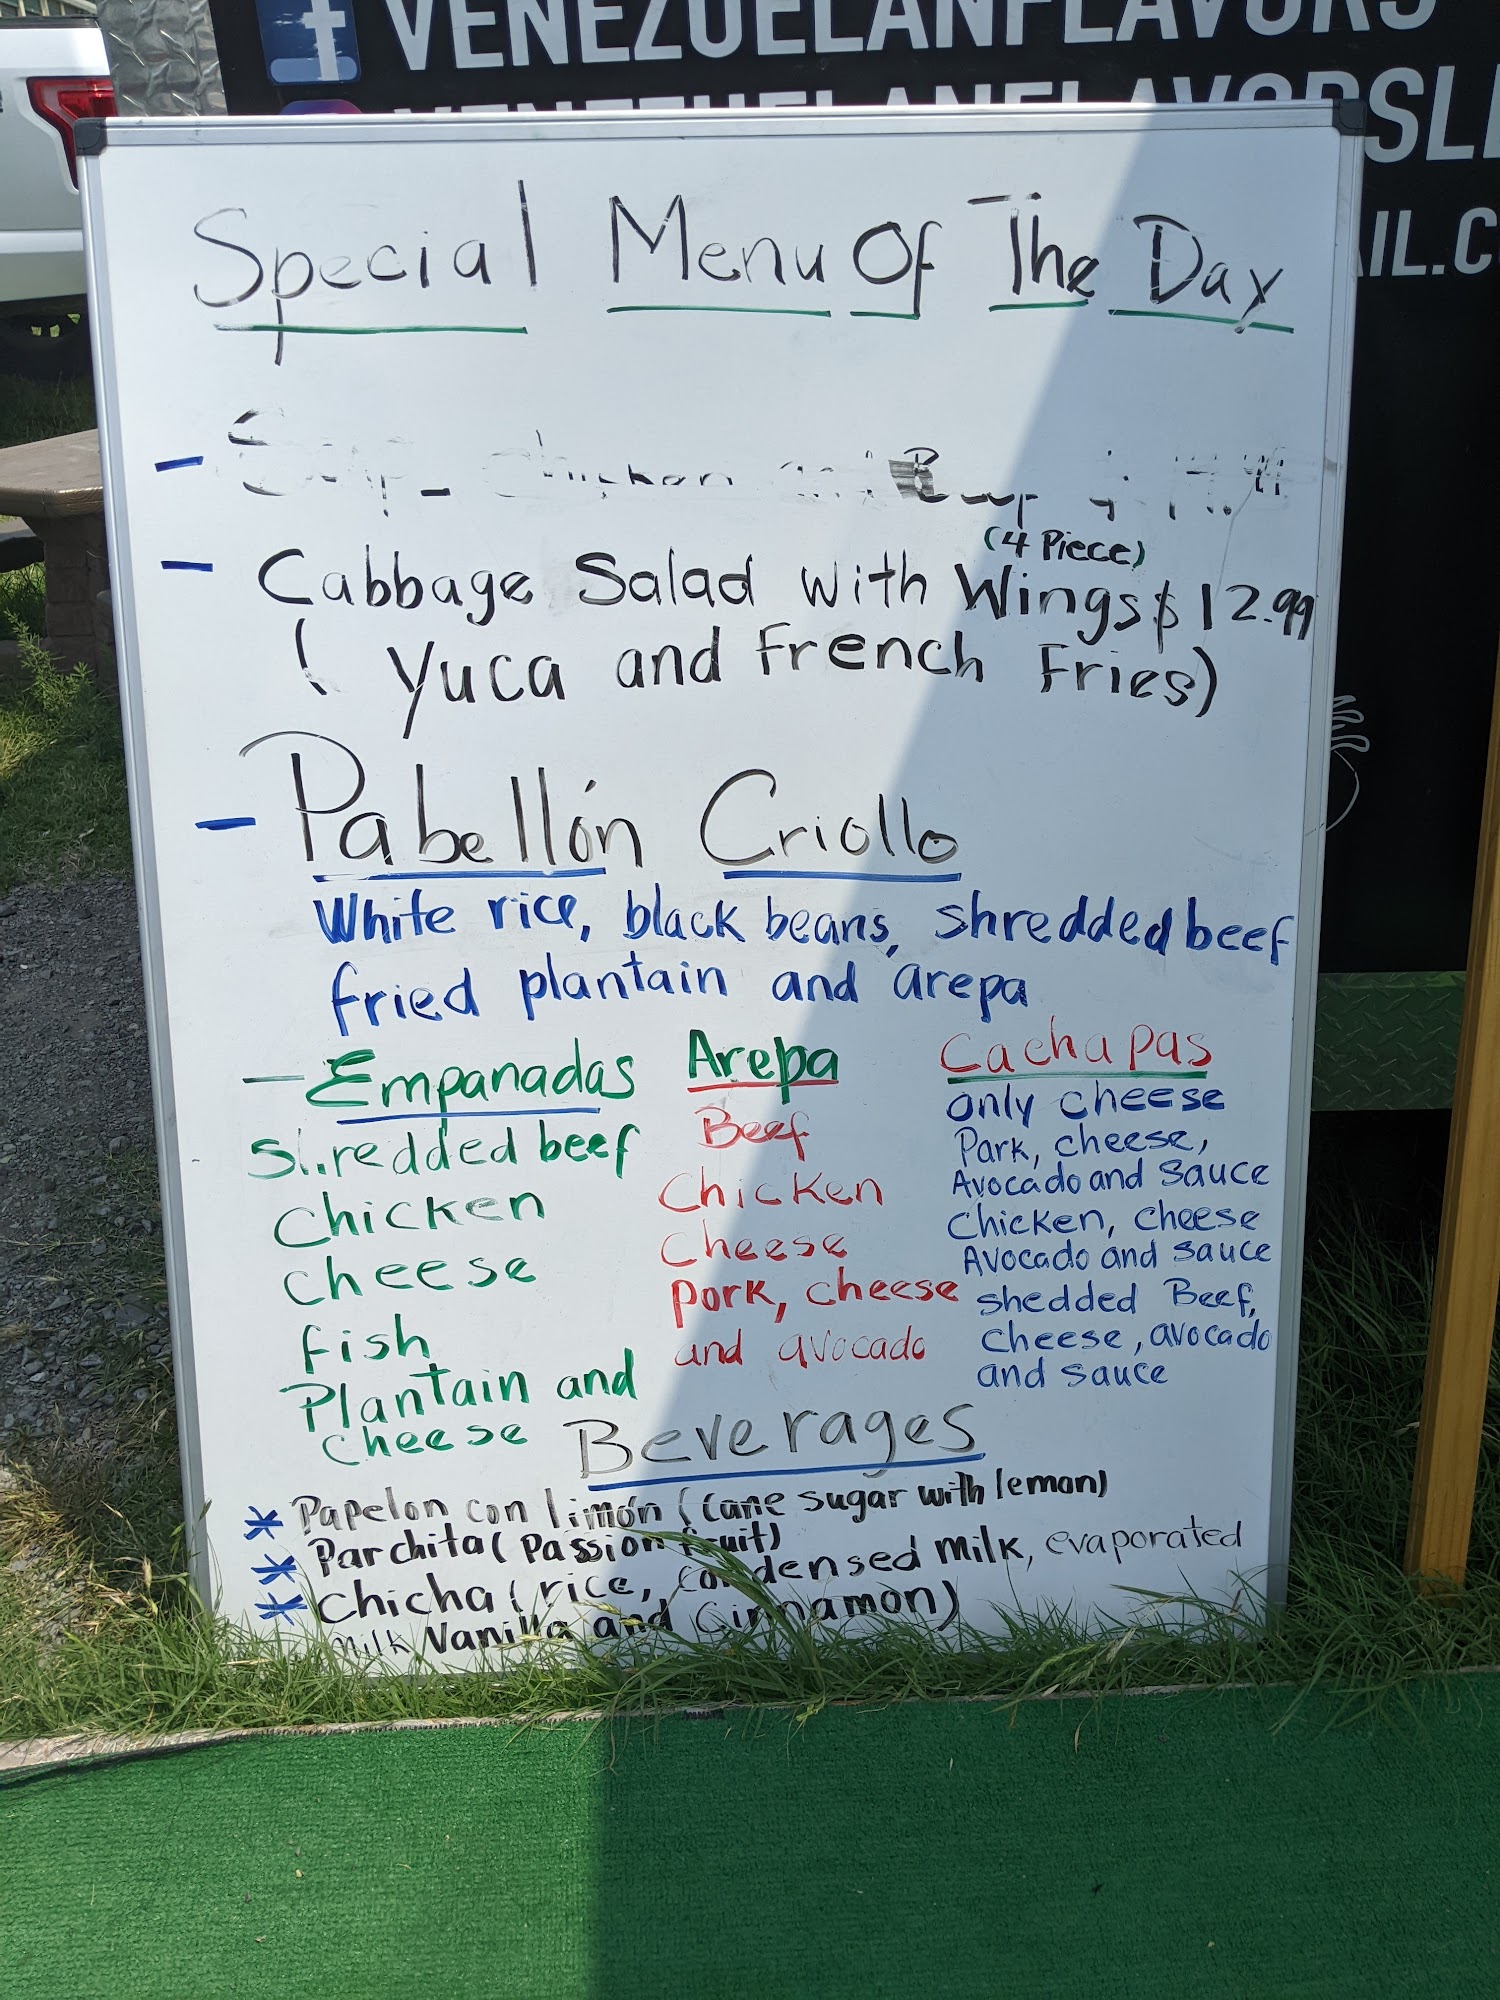 VENEZUELANFLAVORS
Special Menu Of The Day
- Chicken and
(4 Piece)
- Cabbage Salad with Wings $12.99
( Yuca and French Fries)
- Pabellón Criollo
White rice, black beans, shredded beef
fried plantain and arepa
- Empanadas
Shredded beef
Chicken
cheese
fish
Plantain and
cheese
Arepa
Beef
Chicken
Cheese
pork, cheese
and avocado
Cachapas
only cheese
Park, cheese,
Avocado and sauce
Chicken, cheese
Avocado and sauce
shedded Beef,
cheese, avocado
and sauce
Beverages
* Papelon con limón (Cane sugar with lemon)
* Parchita (Passion fruit)
* Chicha (rice, condensed milk, evaporated
milk Vanilla and Cinnamon)